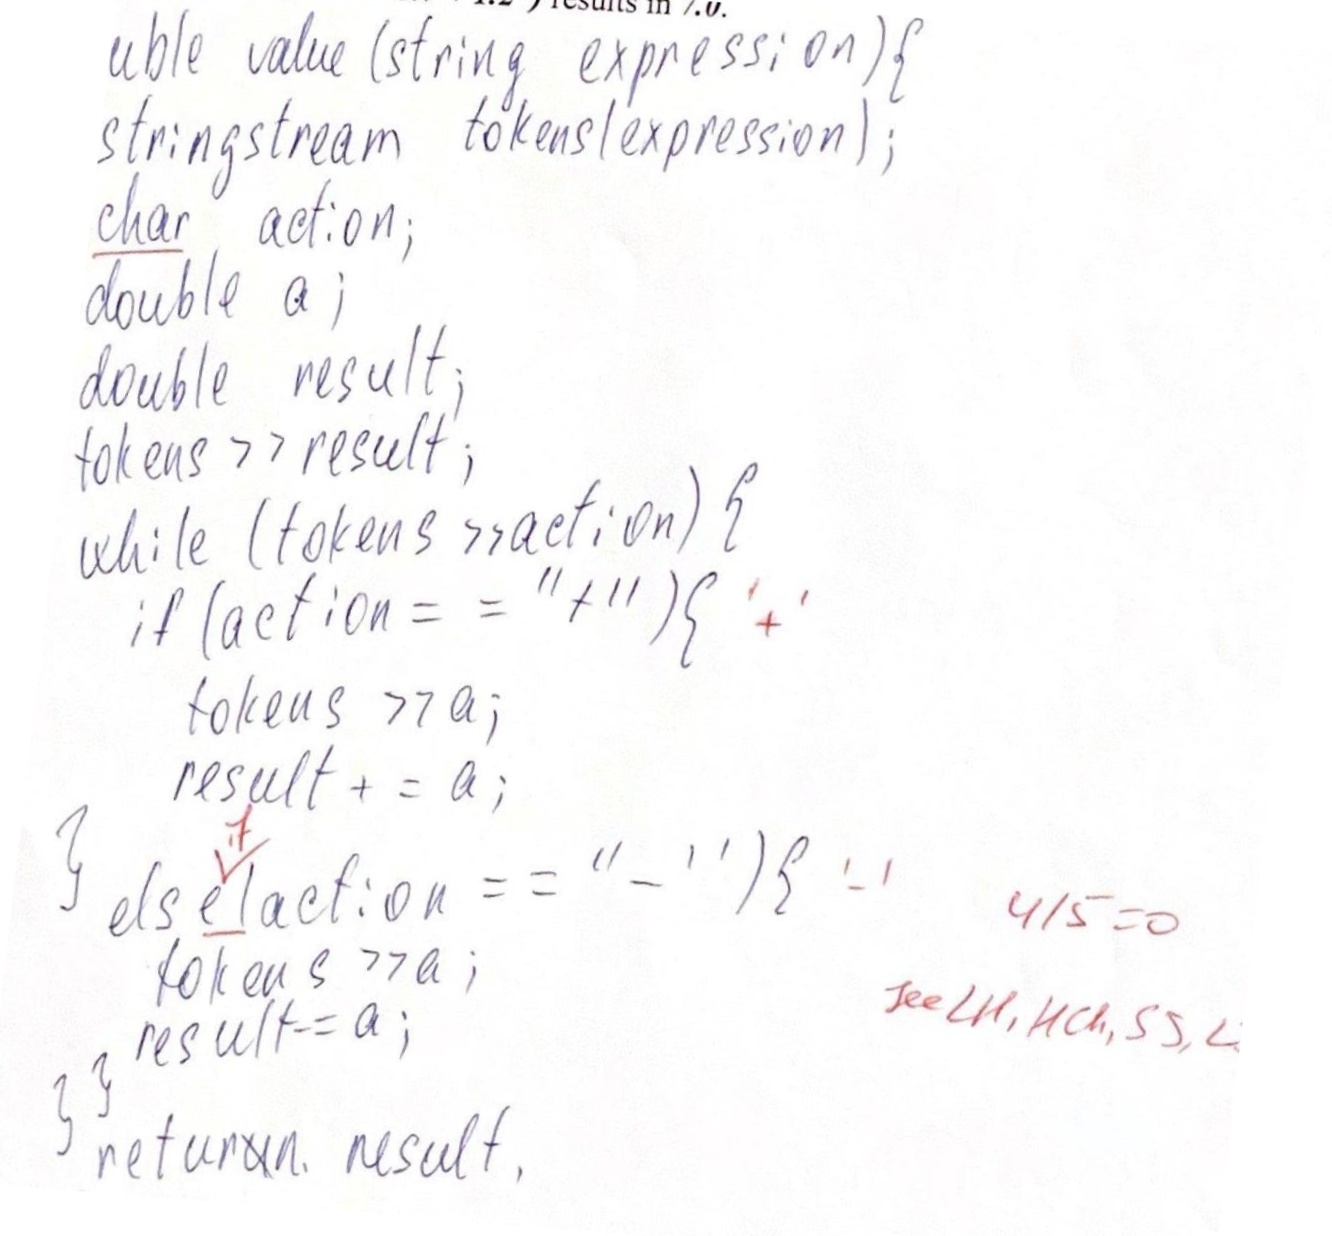 1.2") results in 7.0.
uble value (string expression){
stringstream tokens(expression);
char action;
double a;
double result;
tokens >> result;
while (tokens >> action) {
if (action = = "+"){ '+'
tokens >> a;
result + = a;
if
} else(action = = "-"){ '-'
4/5=0
tokens >> a;
see LH, HCh, SS,
result-= a;
}}
return result,